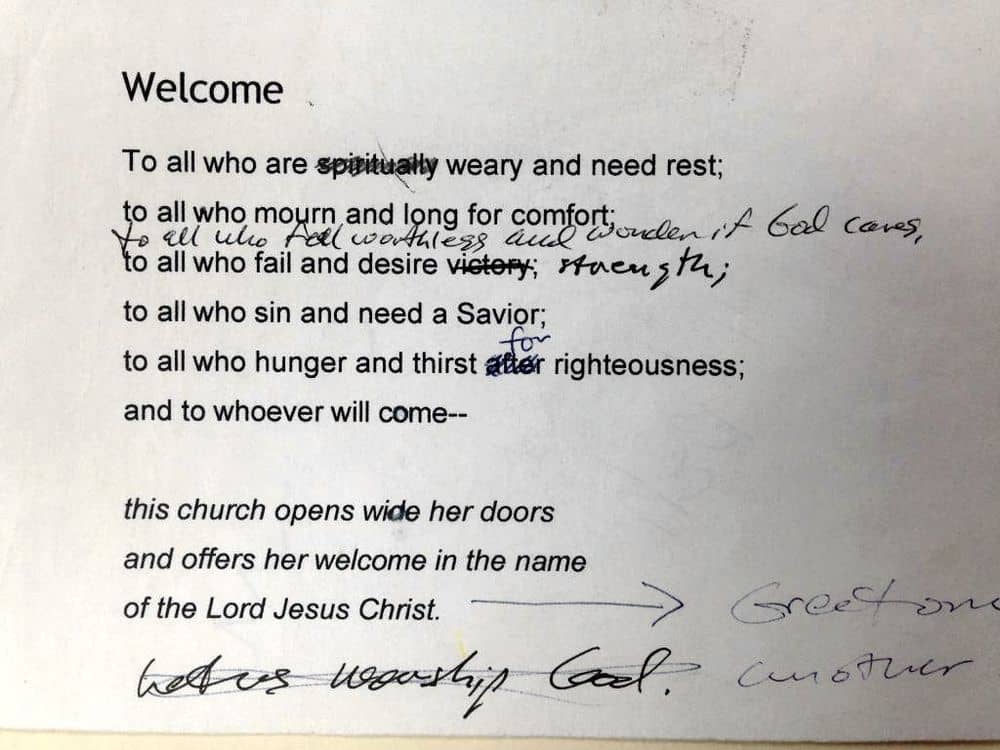 Welcome
To all who are spiritually weary and need rest;
to all who mourn and long for comfort;
to all who feel worthless and wonder if God cares,
to all who fail and desire victory; strength;
to all who sin and need a Savior;
for
to all who hunger and thirst after righteousness;
and to whoever will come--
this church opens wide her doors
and offers her welcome in the name
of the Lord Jesus Christ. Greet one
Let us worship God. another